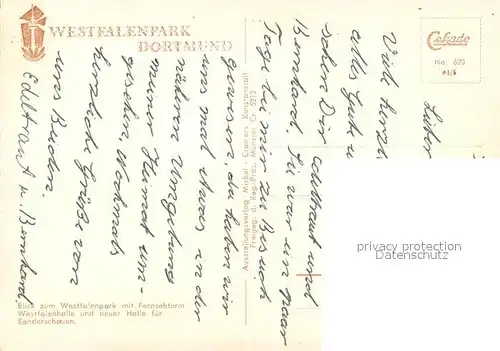 WESTFALENPARK
DORTMUND
Cekade
No. 620
Lieber
Viel herzl
alles Gute u
schen Dir
Edeltraut und
Bernhard. Sie war ein paar
Tage bei mir zu Besuch
gewesen da haben wir
uns mal etwas in der
näheren Umgebung
meiner Heimat um-
gesehen. Nochmals
herzliche Grüße von
uns Beiden.
Edeltraut u. Bernhard.
Ausstellungsverlag Michel-Cramers Kunstanstalt
Freigeg. d. Reg.-Präs. Münster Cr. 5213
Blick zum Westfalenpark mit Fernsehturm
Westfalenhalle und neuer Halle für
Sonderschauen.
privacy protection
oldthing.de